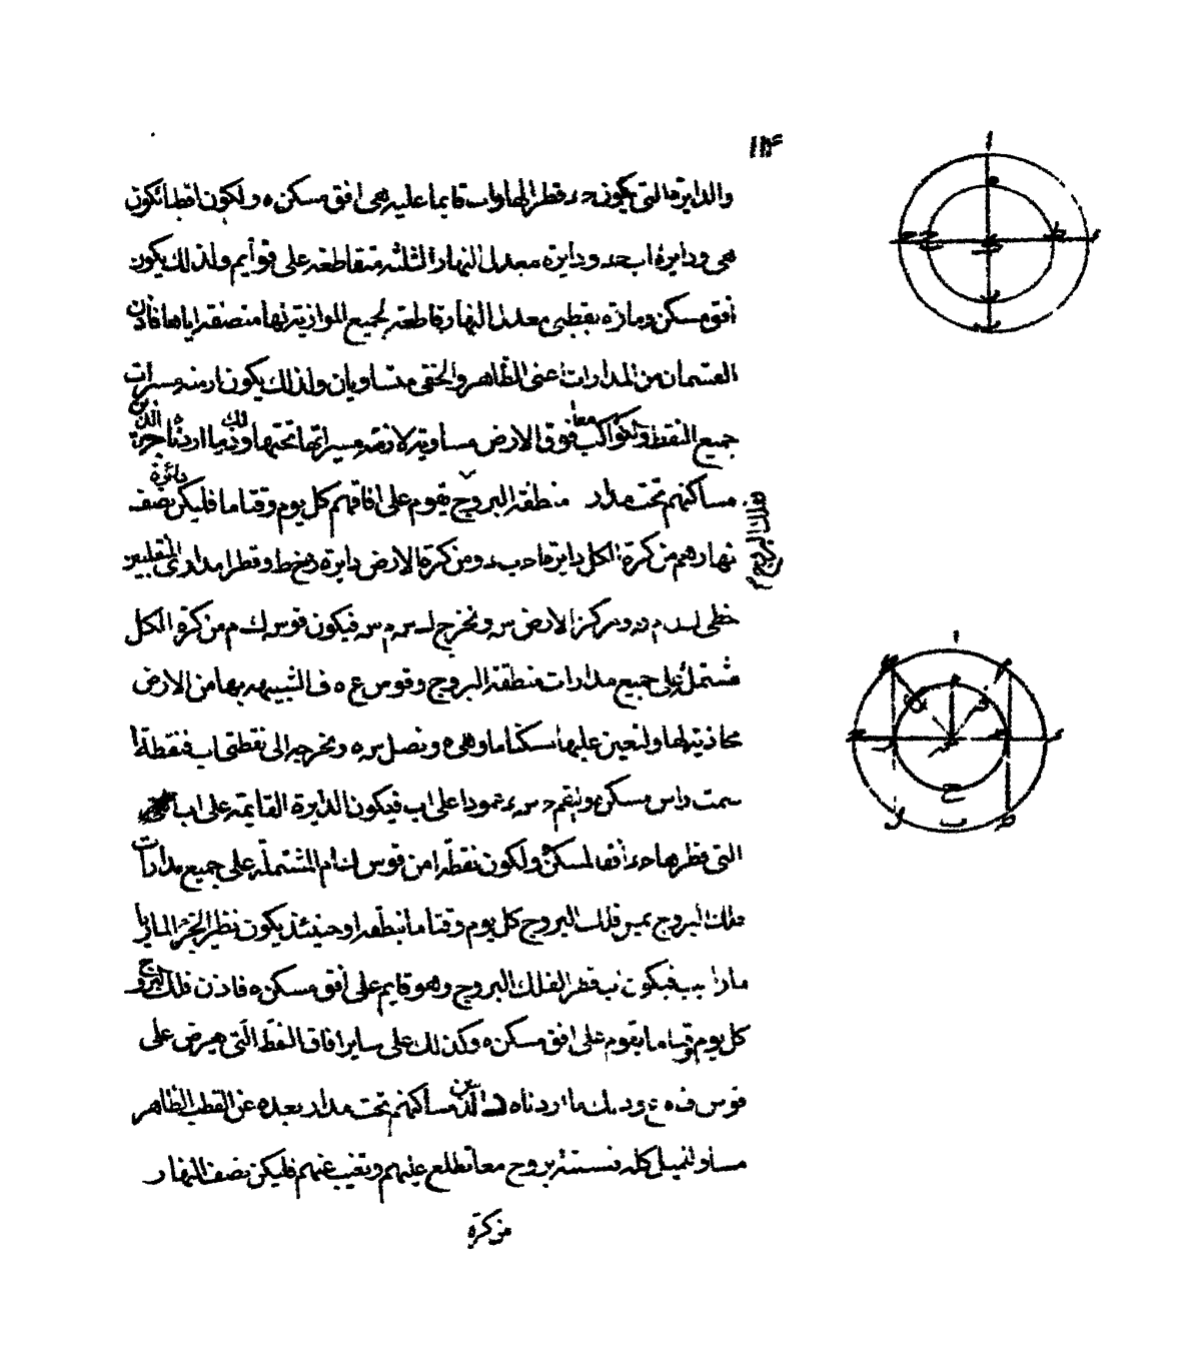 ١١٤
والدايرة التي يكون حء قطر لها واب قايما عليه هى افق مسكن ه ولكون اقطا تكون
هى ودايرة ابحء ودايرة معدل النهار الثلثة متقاطعة على قوايم ولذلك يكون
افق مسكن ه مارة بقطبى معدل النهار قاطعة لجميع الموازية لها منصفة اياها فاذن
القسمان من المدارات اعنى الظاهر والخفى متساويان ولذلك يكون ازمنة مسيرات
جميع النقط والكواكب معا فوق الارض مساوية لازمنة مسيراتها تحتها وذلك ما اردناه الذين
مساكنهم تحت مدار منطقة البروج يقوم على افاقهم كل يوم وقتا ما فليكن نصف دائرة
فلك البروج
نهارهم من كرة الكل دايرة احبء ومن كرة الارض دايرة هحط وقطرا مدارى المنقلبين
خطى ومركز الارض س ونخرج فيكون قوس ك م من كرة الكل
مشتمل على جميع مدارات منطقة البروج وقوس ع ه ف الشبيهة بها من الارض
محاذية لها ولنعين عليها مسكنا ما وهى ه ونصل س ه ونخرجه الى نقطتى اب فنقطة ا
سمت راس مسكن ه ولنقم ح س ء عمودا على اب فيكون الدايرة القايمة على اب
التى قطرها حء افقا لمسكن ه ولكون نقطة ا من قوس ك ا م المشتملة على جميع مدارات
فلك البروج يمر فلك البروج كل يوم وقتا ما بنقطة ا وحينئذ يكون نظير الجزء المار با
مارا بب فيكون اب قطر الفلك البروج وهو قايم على افق مسكن ه فاذن فلك البروج
كل يوم وقتا ما يقوم على افق مسكن ه وكذلك على ساير افاق النقط التى هى على
قوس ف ه ع وذلك ما اردناه الذين مساكنهم تحت مدار بعده عن القطب الظاهر
مساو للميل كله فستة بروج معا تطلع عليهم وتغيب عنهم فليكن نصف النهار
من كرة